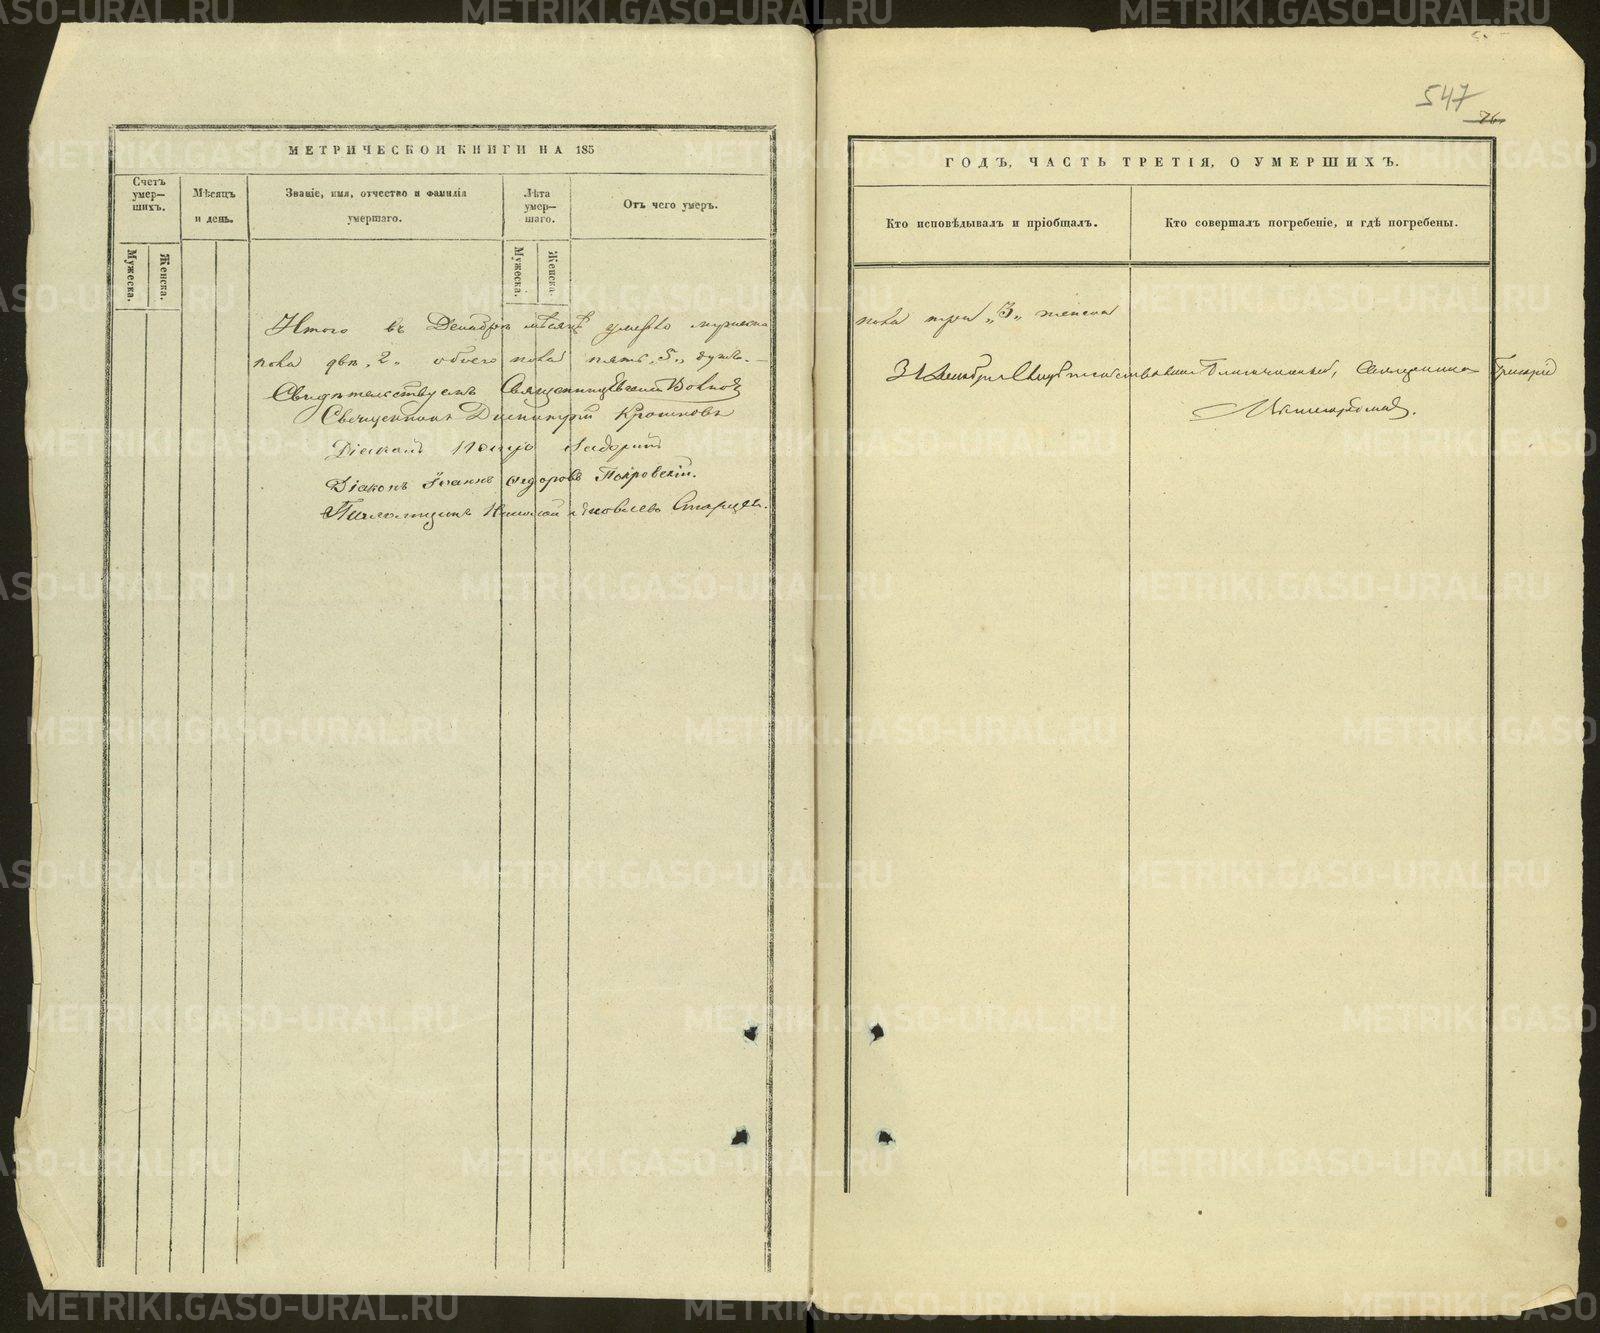 547
76
МЕТРИЧЕСКОЙ КНИГИ НА 185
Счетъ умер-шихъ.
Мужеска.
Женска.
Мѣсяцъ и день.
Званіе, имя, отчество и фамилія умершаго.
Лѣта умер-шаго.
Мужеска.
Женска.
Отъ чего умеръ.
Итого въ Декабрѣ мѣсяцѣ умерло мужеска
пола два „2„ обоего пола пять „5„ душъ.
Свидѣтельствуемъ Священникъ Волковъ
Священникъ Димитрій Крошковъ
Діаконъ Петръ
Діаконъ Іоаннъ Ѳедоровъ Покровскій.
Николай Яковлевъ Старцевъ.
ГОДЪ, ЧАСТЬ ТРЕТІЯ, О УМЕРШИХЪ.
Кто исповѣдывалъ и пріобщалъ.
Кто совершалъ погребеніе, и гдѣ погребены.
пола три „3„ женска
31 Декабря Свидѣтельствовалъ Благочинный, Священникъ Григорій
METRIKI.GASO-URAL.RU